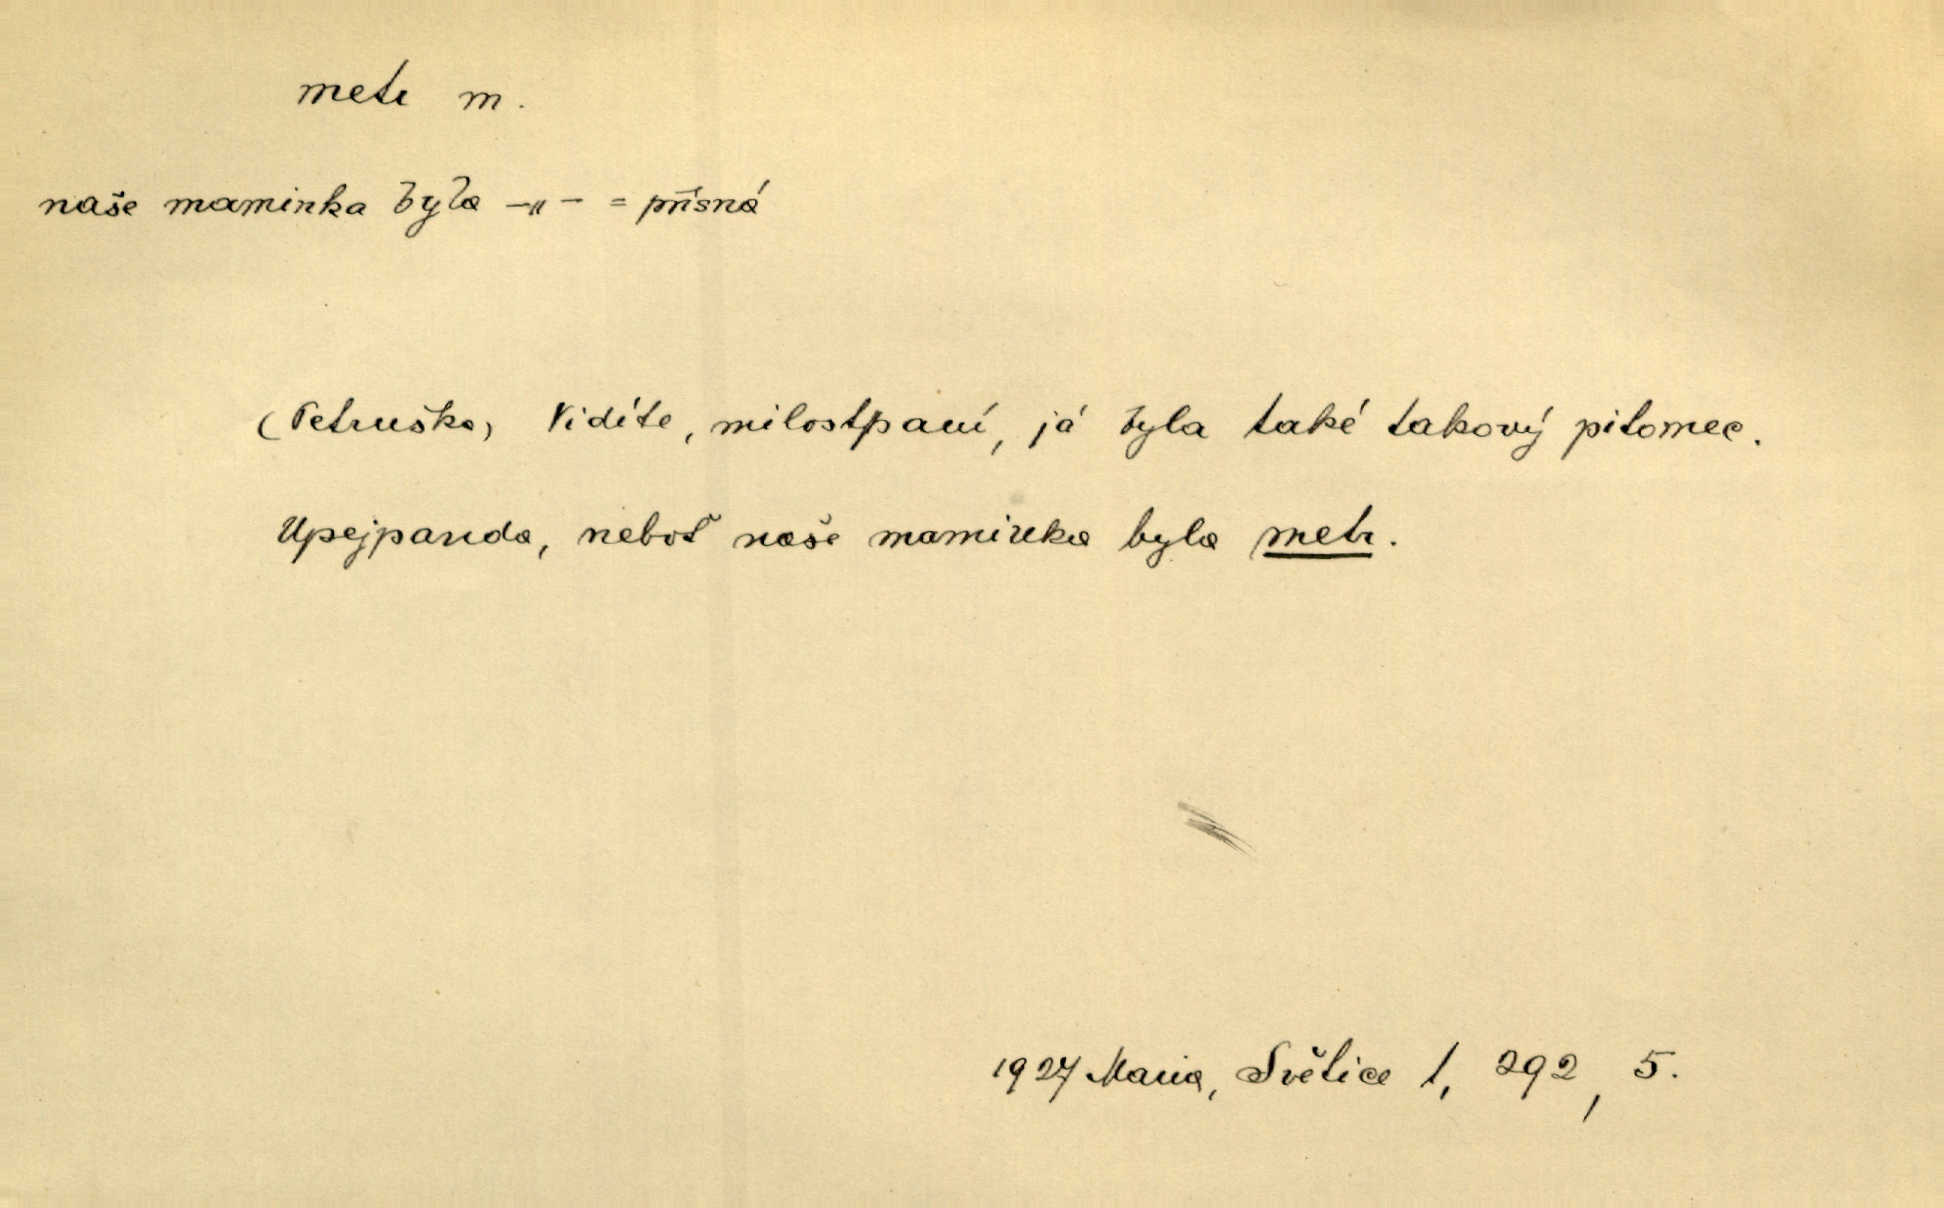 metr m.
naše maminka byla -"- = přísná
(Petruška) Vidíte, milostpaní, já byla také takový pitomec.
Upejpanda, neboť naše maminka byla metr.
1927 Maria, Světice 1, 292, 5.